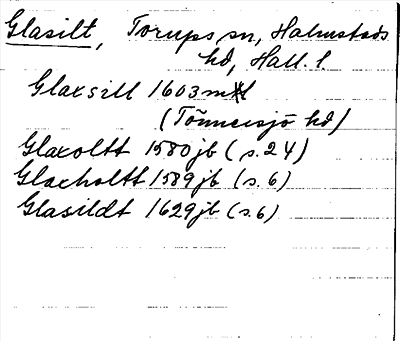 Glasilt, Torups sn, Halmstads
hd, Hall. l.
Glaxsill 1603 mtl
(Tönnersjö hd)
Glaxoltt 1580 jb (s. 24)
Glaxholtt 1589 jb (s. 6)
Glasildt 1629 jb (s. 6)